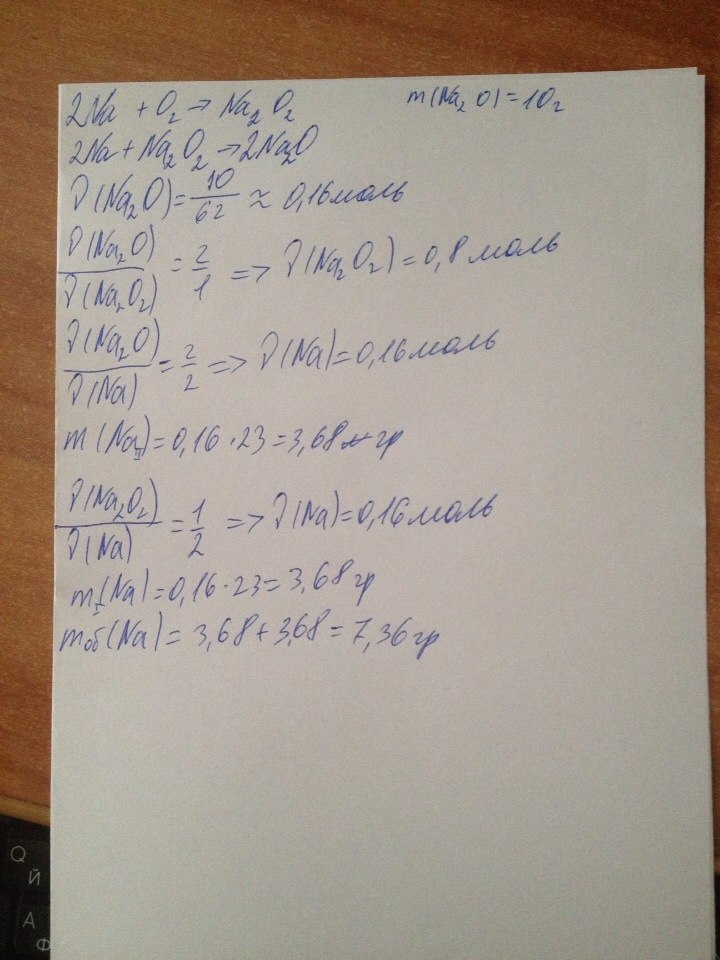 2Na + O₂ → Na₂O₂ m(Na₂O) = 10г
2Na + Na₂O₂ → 2Na₂O
ν(Na₂O) = 10/62 ≈ 0,16 моль
ν(Na₂O)/ν(Na₂O₂) = 2/1 => ν(Na₂O₂) = 0,8 моль
ν(Na₂O)/ν(Na) = 2/2 => ν(Na) = 0,16 моль
m(Na) = 0,16 · 23 = 3,68 гр
ν(Na₂O₂)/ν(Na) = 1/2 => ν(Na) = 0,16 моль
m_I(Na) = 0,16 · 23 = 3,68 гр
m_об(Na) = 3,68 + 3,68 = 7,36 гр
Q
Й
A
Ф